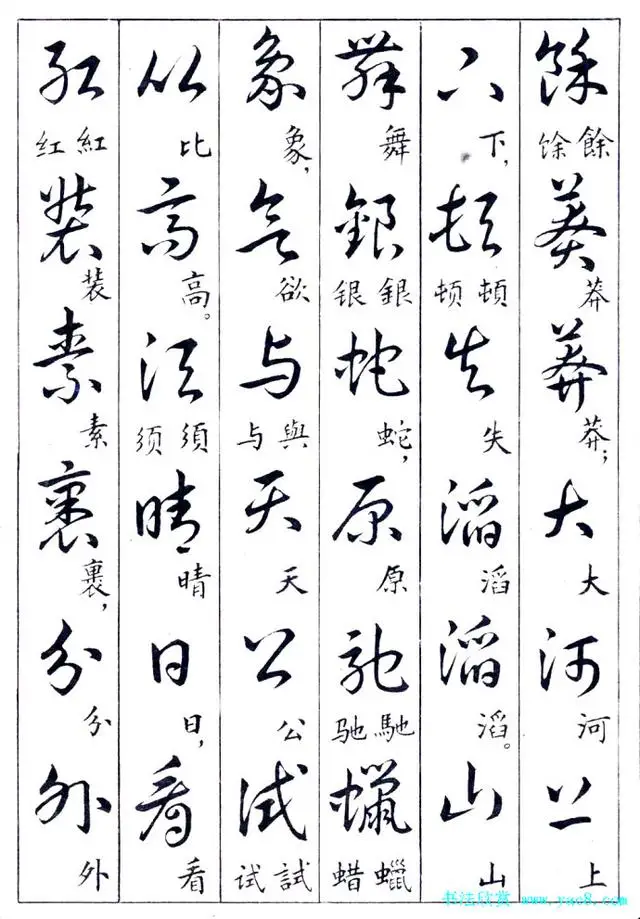 餘 馀 餘 莽 莽 莽 莽; 大 大 河 河 上 上
下 下, 頓 顿 頓 失 失 滔 滔 滔 滔。 山 山
舞 舞 銀 银 銀 蛇 蛇, 原 原 馳 驰 馳 蠟 蜡 蠟
象 象, 欲 欲 与 与 與 天 天 公 公 試 试 試
比 比 高 高。 須 须 須 晴 晴 日 日, 看 看
紅 红 紅 装 装 素 素 裹 裹, 分 分 外 外
书法欣赏 www.yac8.com